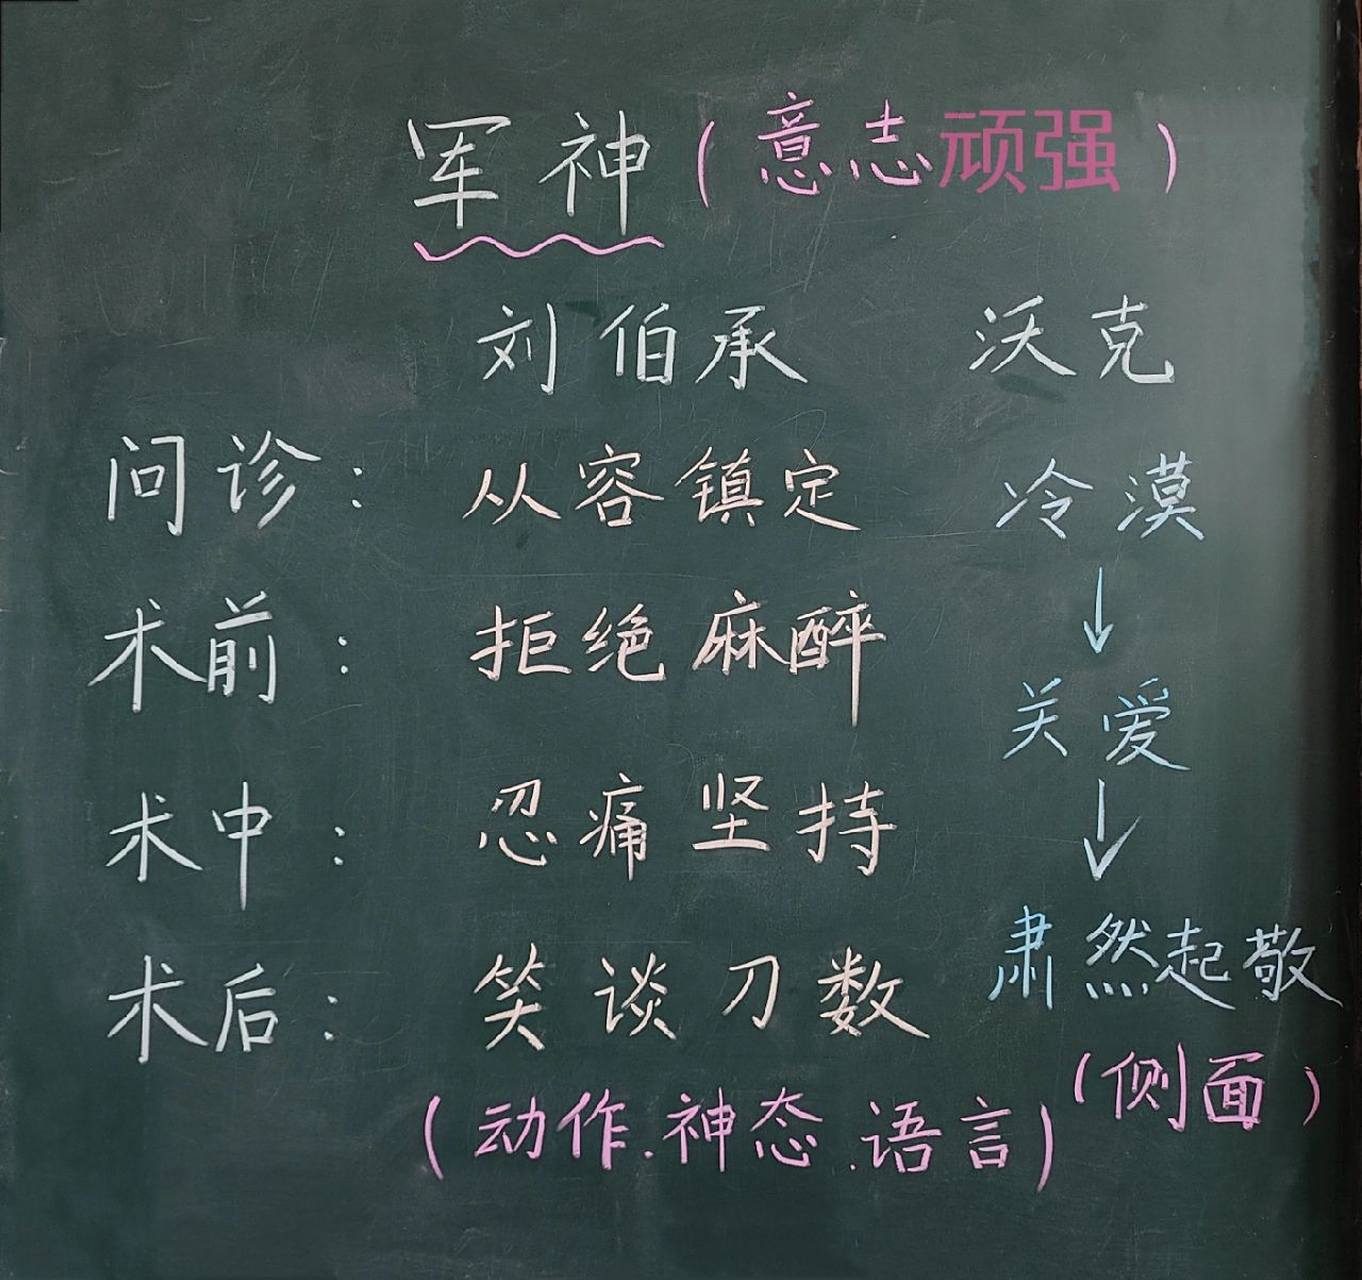 军神（意志顽强）
刘伯承 沃克
问诊：从容镇定 冷漠
↓
术前：拒绝麻醉
关爱
↓
术中：忍痛坚持
肃然起敬
术后：笑谈刀数
（侧面）
（动作.神态.语言）